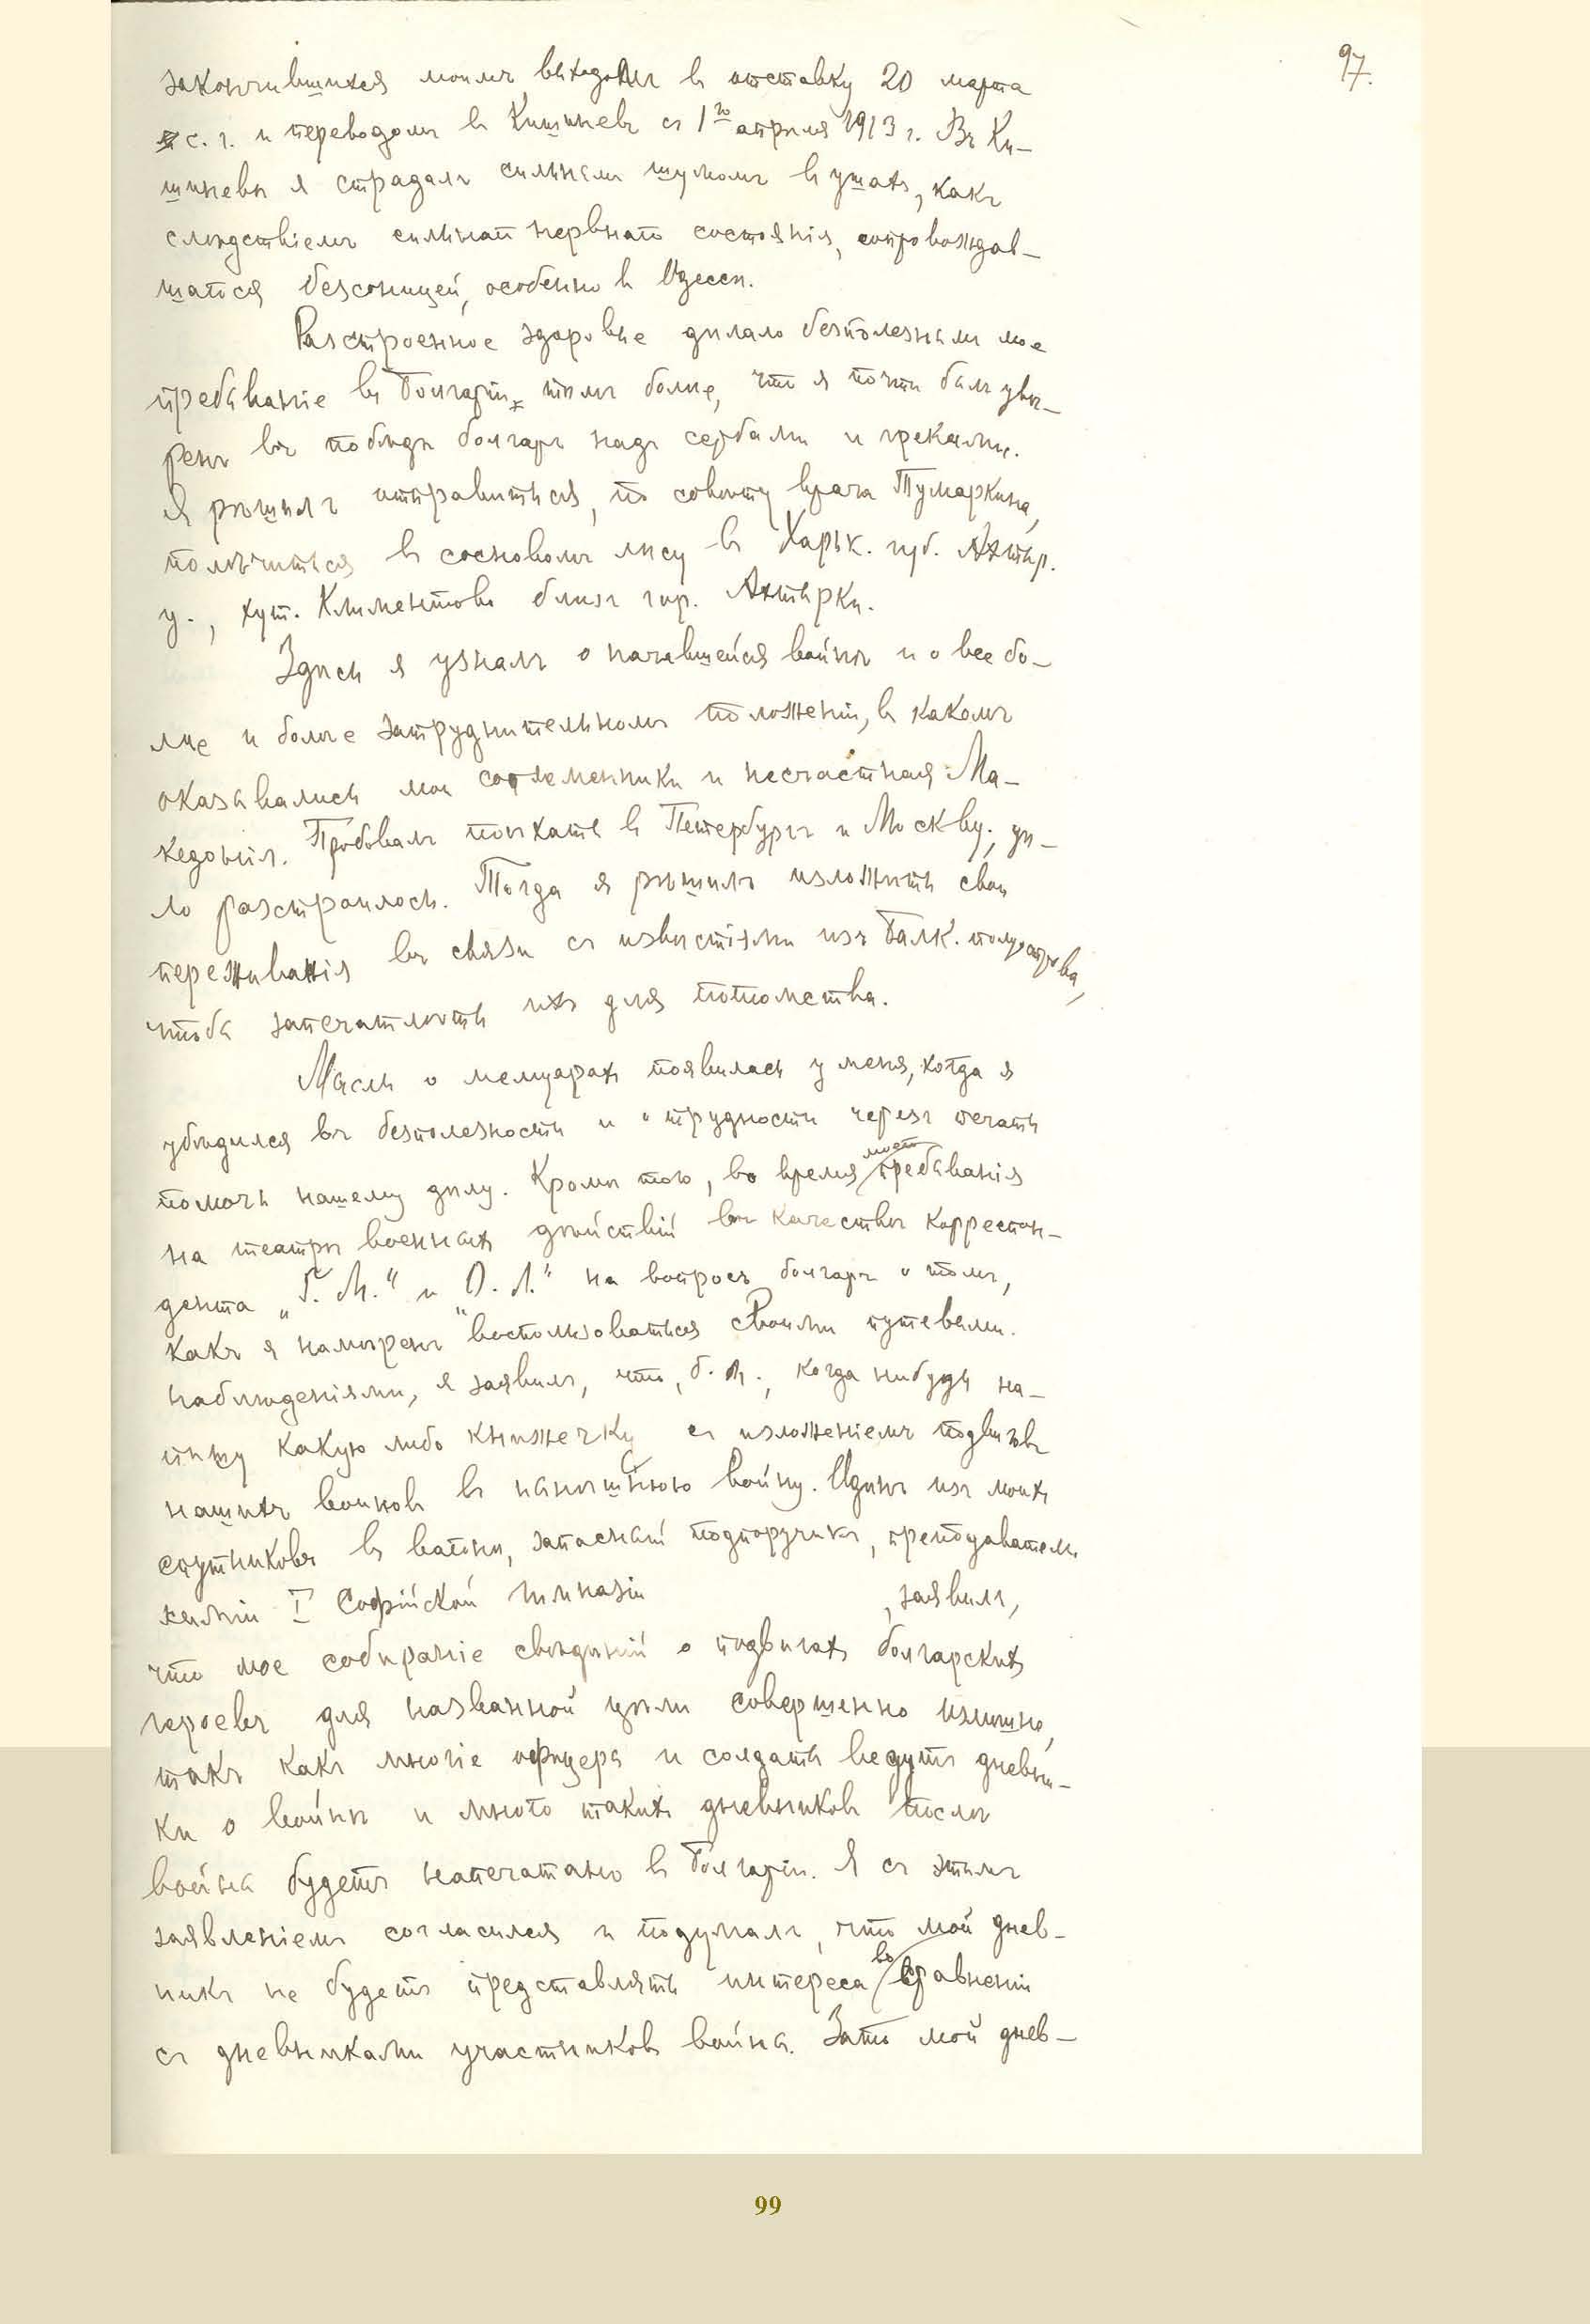 97.
закончившихся моимъ выходомъ в отставку 20 марта
с. г. и переводомъ в Кишиневъ съ 1го апрѣля 1913 г. Въ Ки-
шиневѣ я страдалъ сильнымъ шумомъ в ушахъ, какъ
слѣдствіемъ сильнаго нервнаго состоянія, сопровождав-
шагося безсоницей, особенно в Одессѣ.
Разстроенное здоровье дѣлало безполезнымъ мое
пребываніе въ Болгаріи, тѣмъ болѣе, что я почти былъ увѣ-
ренъ въ побѣдѣ болгаръ надъ сербами и греками.
Я рѣшилъ отправиться, по совѣту врача Тумаркина,
полѣчиться в сосновомъ лѣсу в Харьк. губ. Ахтыр.
у., хут. Климентово близъ гор. Ахтырки.
Здѣсь я узналъ о начавшейся войнѣ и о все бо-
лѣе и болѣе затруднительномъ положеніи, в какомъ
оказывались мои соплеменники и несчастная Ма-
кедонія. Пробовалъ поѣхать в Петербургъ и Москву; дѣ-
ло разстроилось. Тогда я рѣшилъ изложить свои
переживанія въ связи съ извѣстіями изъ Балк. полуострова,
чтобы запечатлѣть ихъ для потомства.
Мысль о мемуарахъ появилась у меня, когда я
убѣдился въ безполезности и трудности черезъ печать
помочь нашему дѣлу. Кромѣ того, во время моего пребыванія
на театрѣ военныхъ дѣйствій въ качествѣ корреспон-
дента „Г. М.“ и „О. Л.“ на вопросъ болгаръ о томъ,
какъ я намѣренъ воспользоваться своими путевыми
наблюденіями, я заявилъ, что, б. м., когда нибудь на-
пишу какую либо книжечку съ изложеніемъ подвиговъ
нашихъ воиновъ в нынѣшнюю войну. Одинъ изъ моихъ
спутниковъ в вагонѣ, запасный подпоручикъ, преподаватель
химіи I Софійской гимназіи , заявилъ,
что мое собираніе свѣдѣній о подвигахъ болгарскихъ
героевъ для названной цѣли совершенно излишне,
такъ какъ многіе офицеры и солдаты ведутъ дневни-
ки о войнѣ и много такихъ дневниковъ послѣ
войны будетъ напечатано в Болгаріи. Я съ этимъ
заявленіемъ согласился и подумалъ, что мой днев-
никъ не будетъ представлять интереса въ сравненіи
съ дневниками участниковъ войны. Зато мой днев-
99